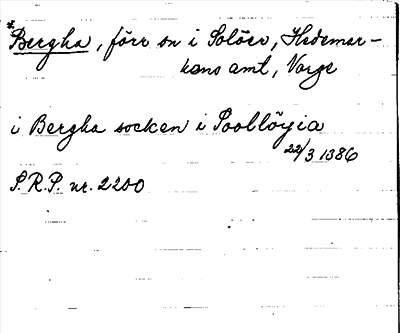 *Bergha, förr sn i Solöer, Hedemar-
kens amt, Norge
i Bergha socken i Sooblöyia
22/3 1386
S.R.P. nr. 2200